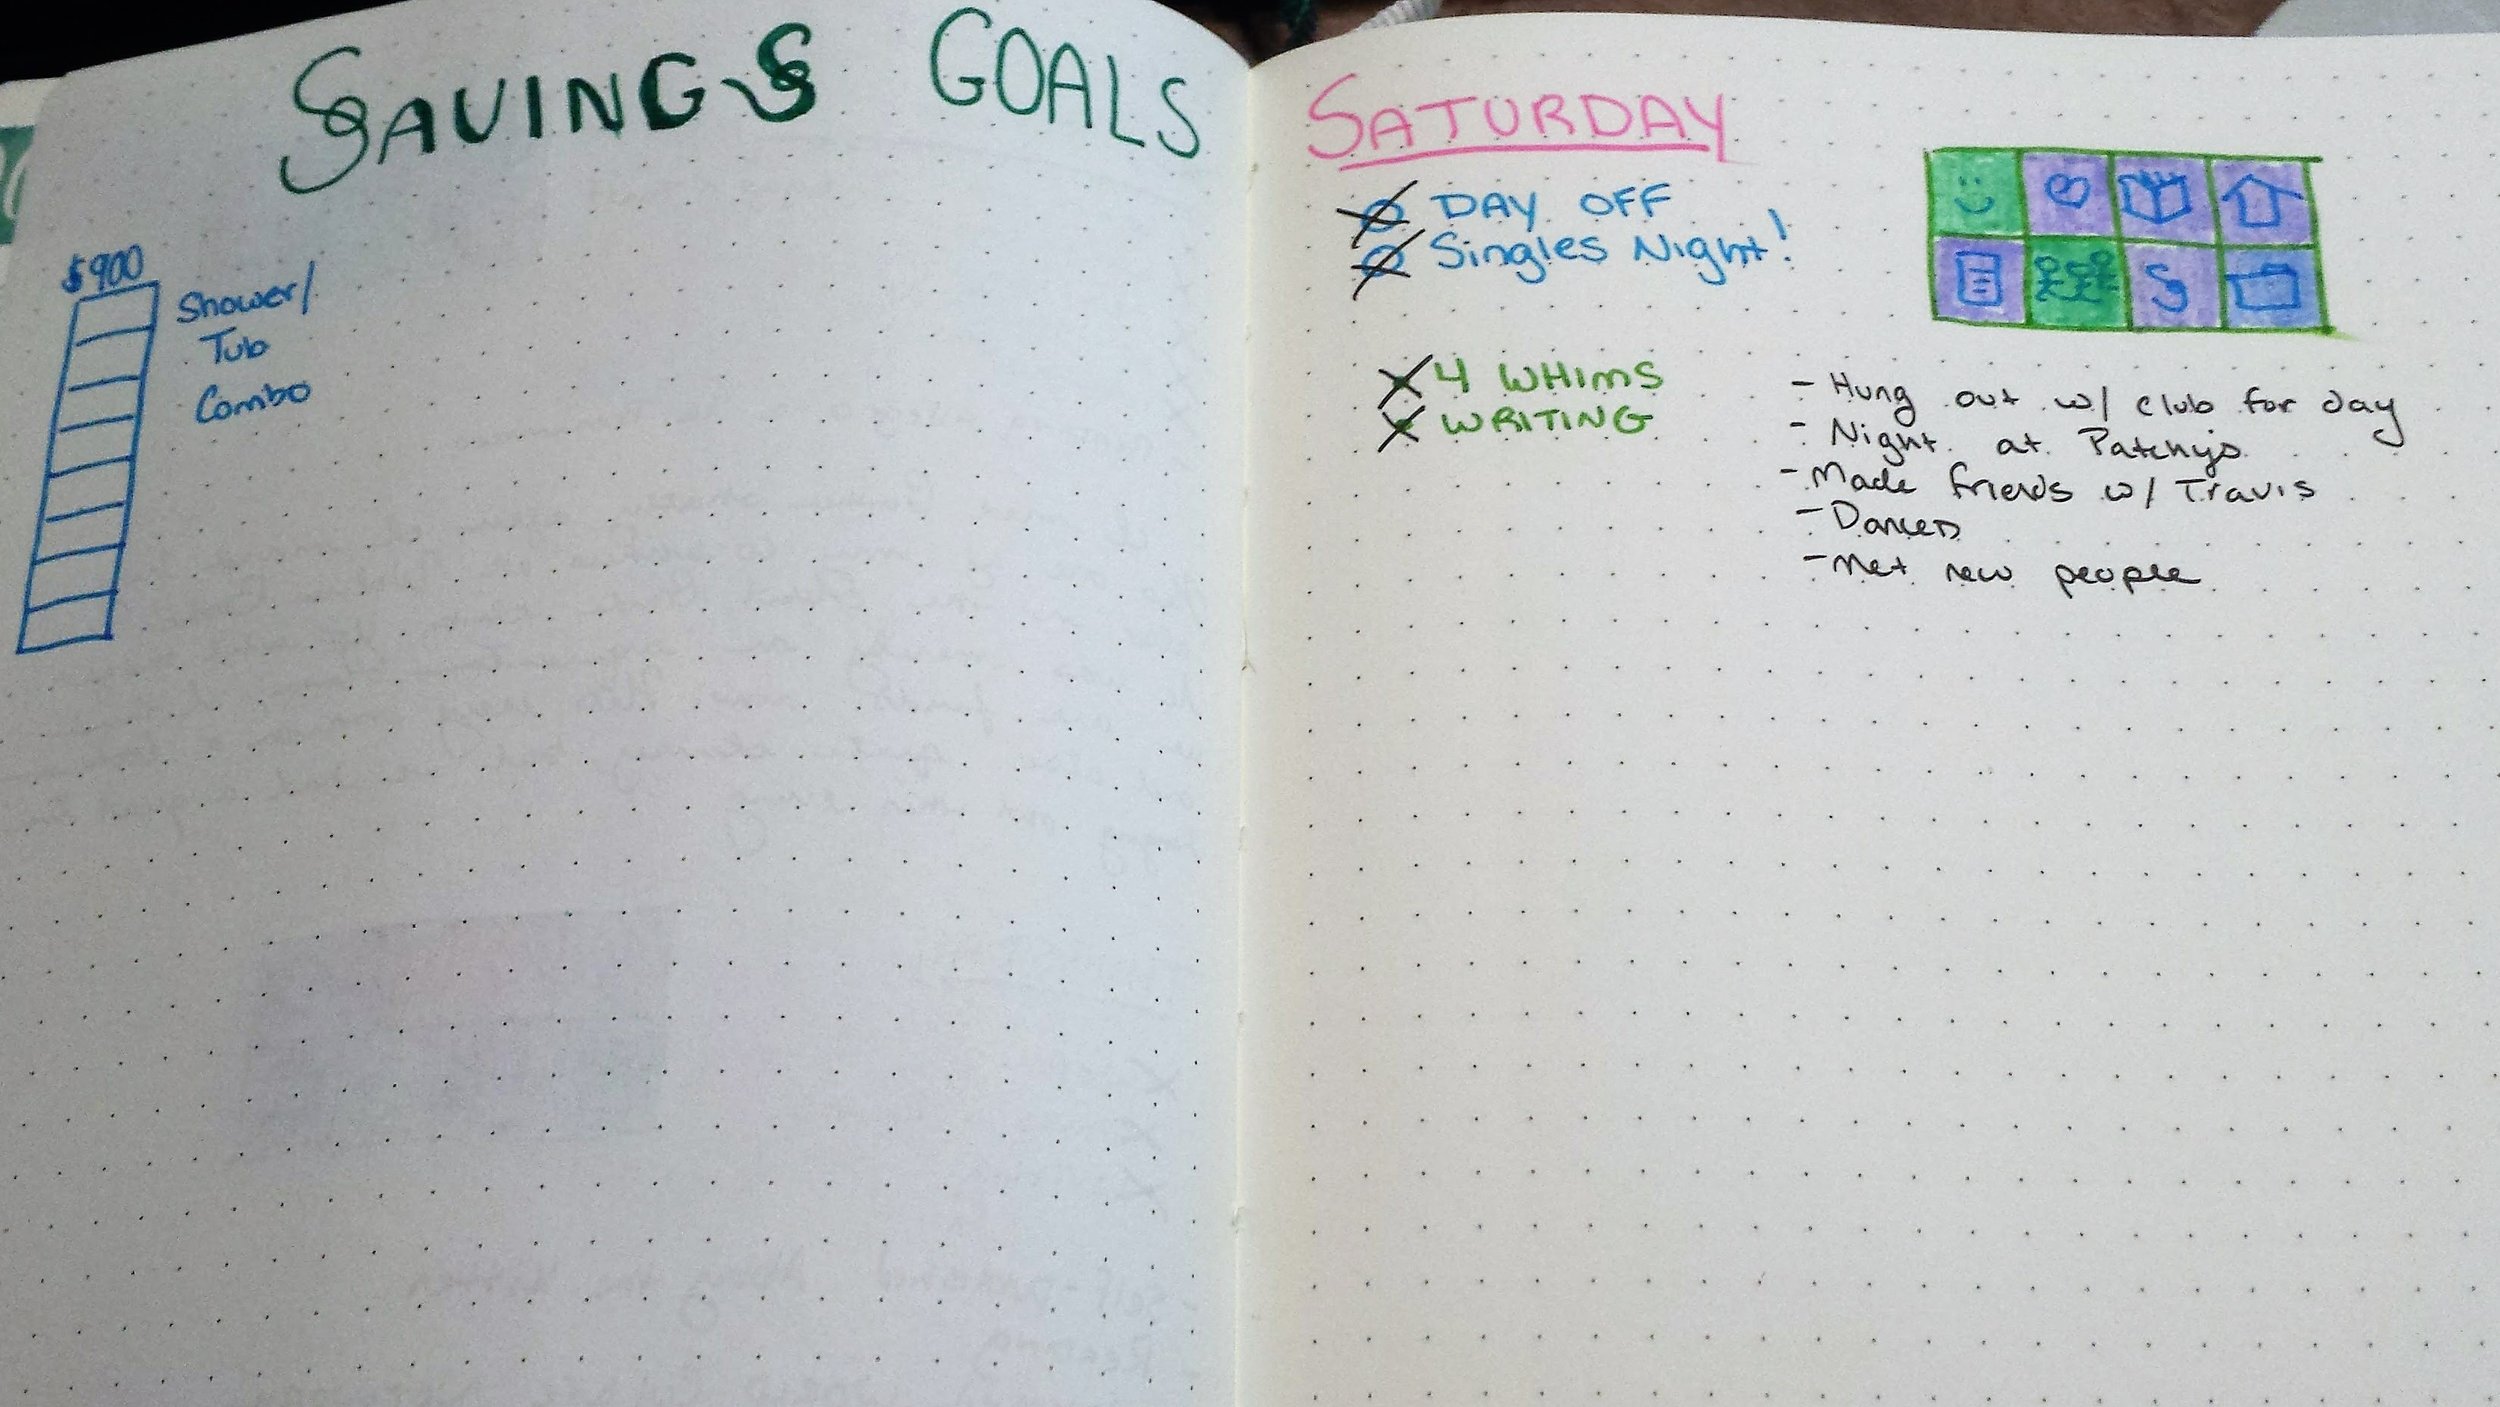 SAVINGS GOALS
$900
Shower/
Tub
Combo
SATURDAY
DAY OFF
Singles Night!
4 WHIMS
WRITING
- Hung out w/ club for day
- Night at Patchys
- Made friends w/ Travis
- Danced
- Met new people